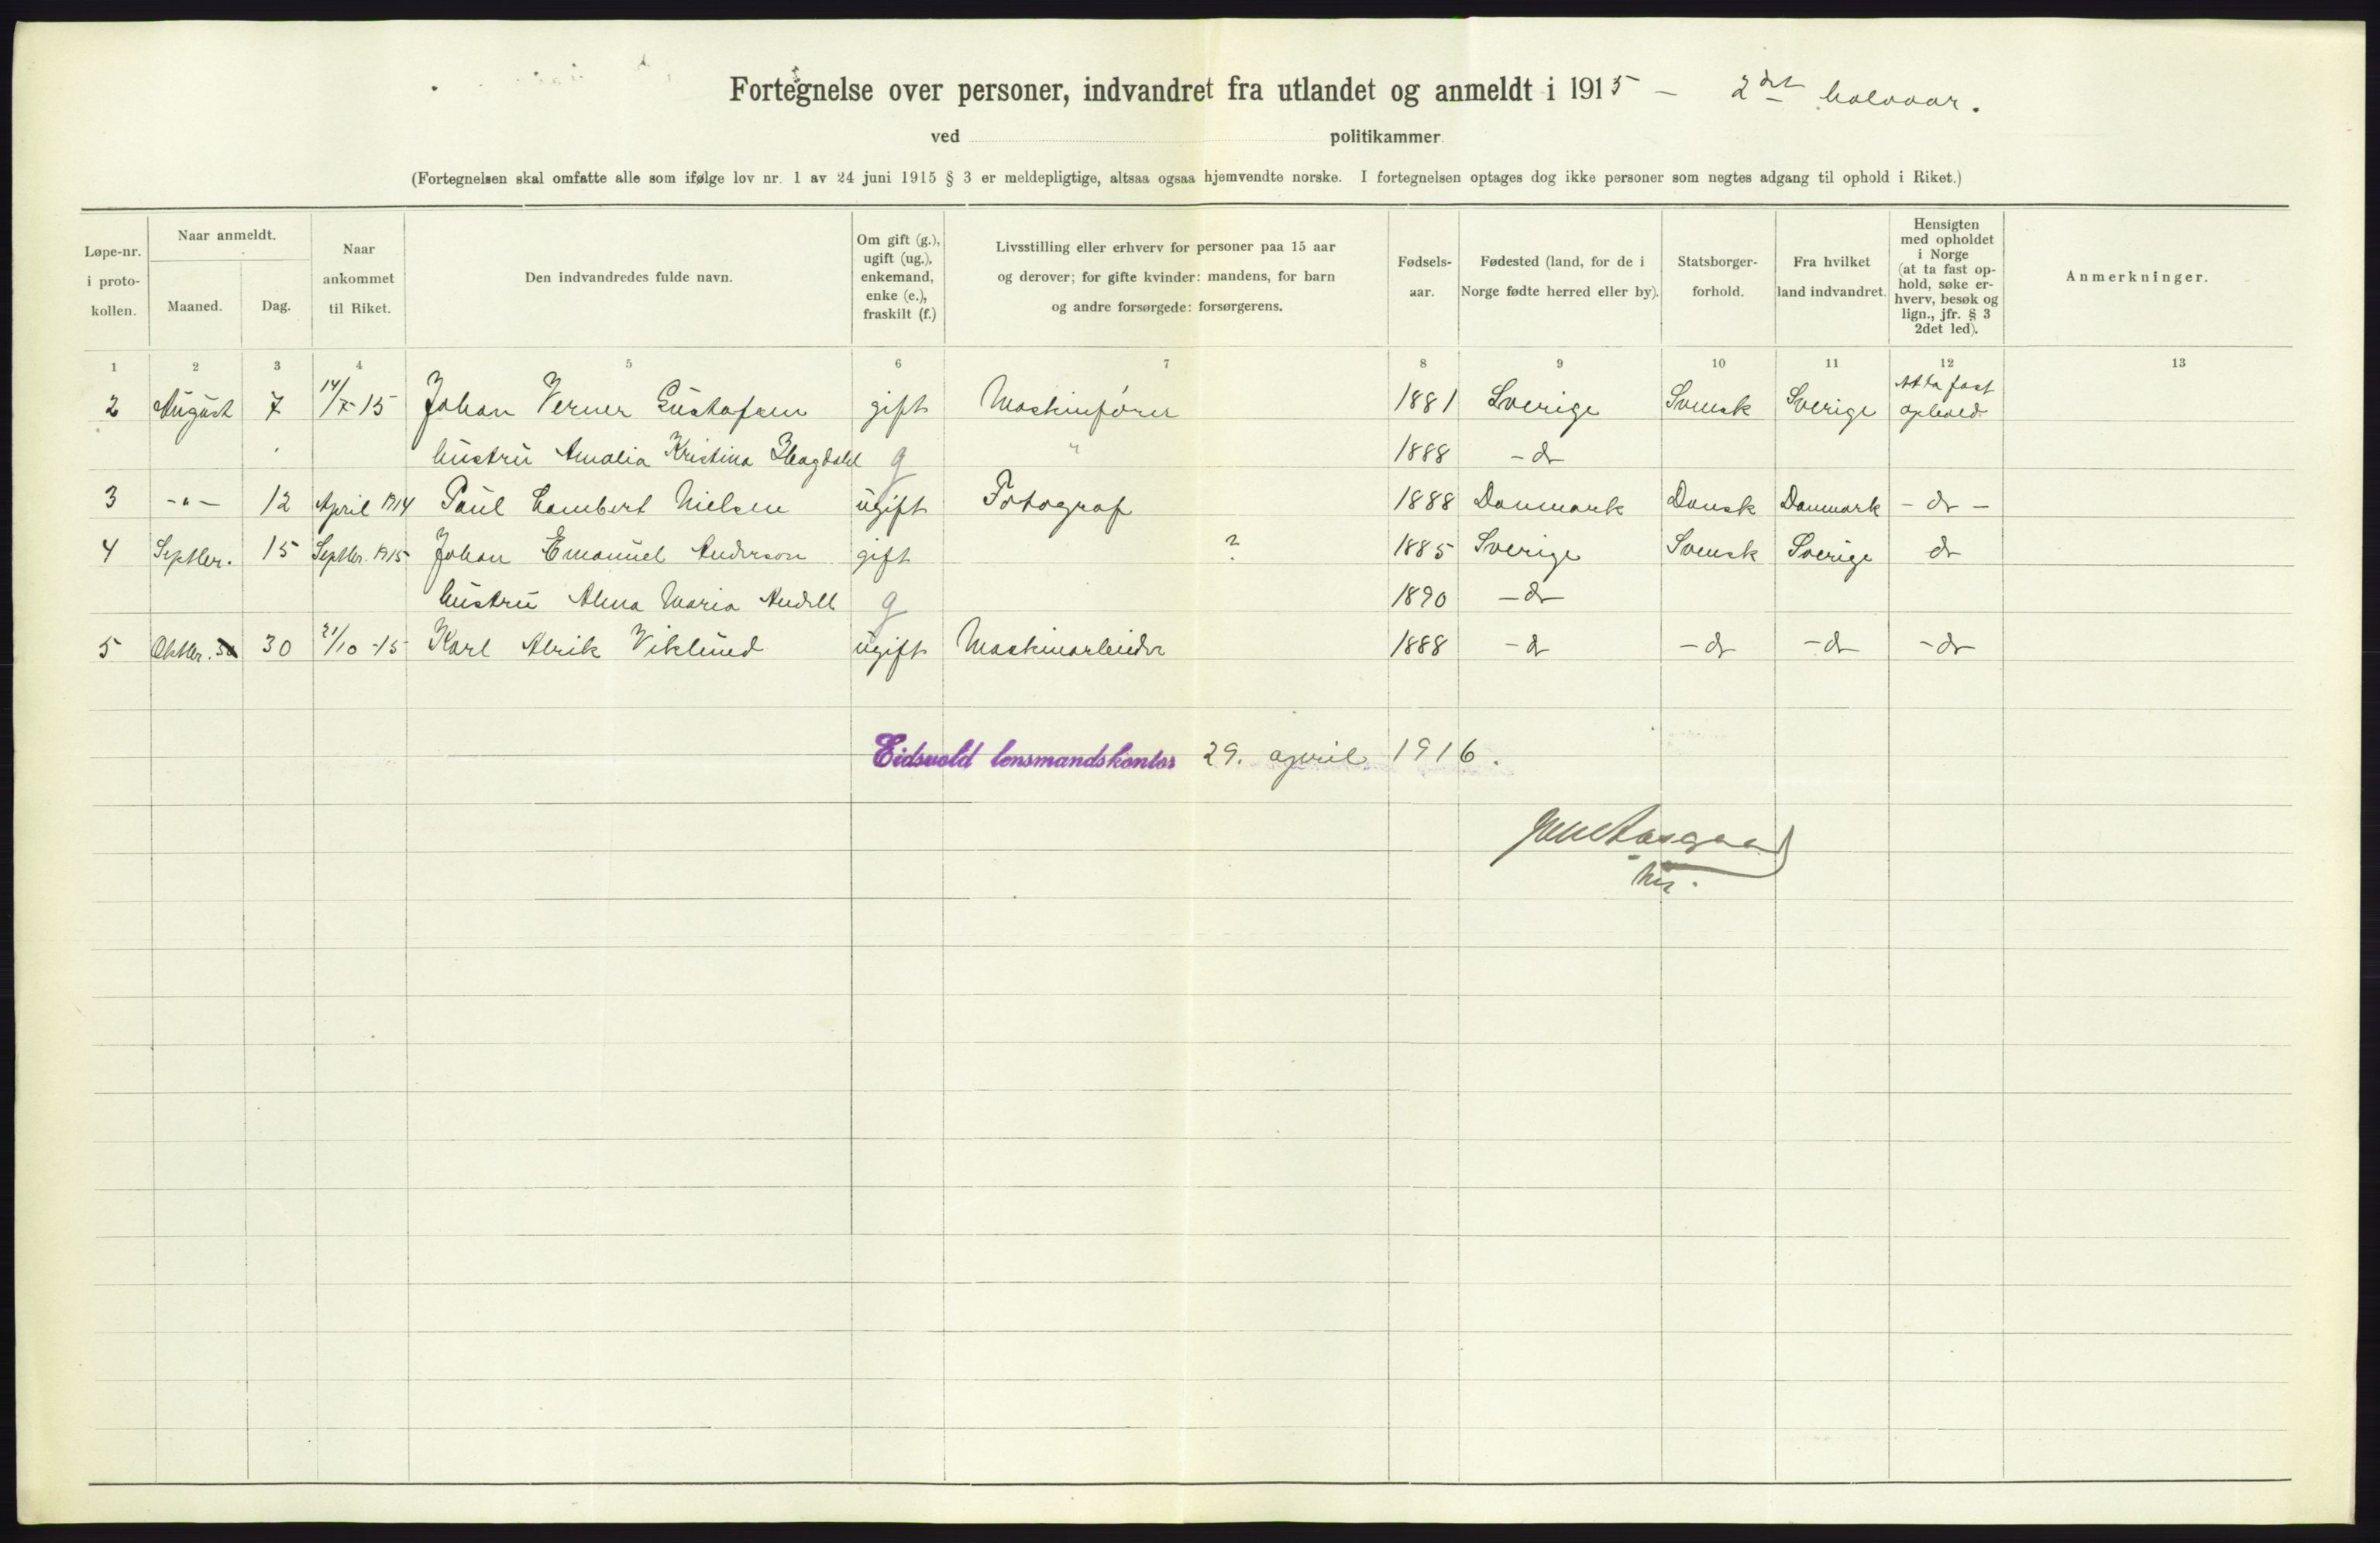 Fortegnelse over personer, indvandret fra utlandet og anmeldt i 1915 – 2det halvaar.
ved politikammer
(Fortegnelsen skal omfatte alle som ifølge lov nr. 1 av 24 juni 1915 § 3 er meldepligtige, altsaa ogsaa hjemvendte norske. I fortegnelsen optages dog ikke personer som negtes adgang til ophold i Riket.)
Løpe-nr. i proto-kollen.
Naar anmeldt.
Maaned.
Dag.
Naar ankommet til Riket.
Den indvandredes fulde navn.
Om gift (g.), ugift (ug.), enkemand, enke (e.), fraskilt (f.)
Livsstilling eller erhverv for personer paa 15 aar og derover; for gifte kvinder: mandens, for barn og andre forsørgede: forsørgerens.
Fødsels-aar.
Fødested (land, for de i Norge fødte herred eller by).
Statsborger-forhold.
Fra hvilket land indvandret.
Hensigten med opholdet i Norge (at ta fast op-hold, søke er-hverv, besøk og lign., jfr. § 3 2det led).
Anmerkninger.
1 2 3 4 5 6 7 8 9 10 11 12 13
2 August 7 14/7-15 Johan Verner Gustafsen gift Maskinfører 1881 Sverige Svensk Sverige At ta fast ophold
hustru Amalia Kristina g " 1888 – do
3 -"- 12 April 1914 Paul Lambert Nielsen ugift Fotograf 1888 Danmark Dansk Danmark – do –
4 Septbr. 15 Septbr. 1915 Johan Emanuel Anderson gift ? 1885 Sverige Svensk Sverige do
hustru Alma Maria g 1890 – do
5 Oktbr. 30 21/10-15 Karl Alrik Viklund ugift Maskinarbeider 1888 – do – do – do – do
Eidsvold lensmandskontor 29. april 1916.